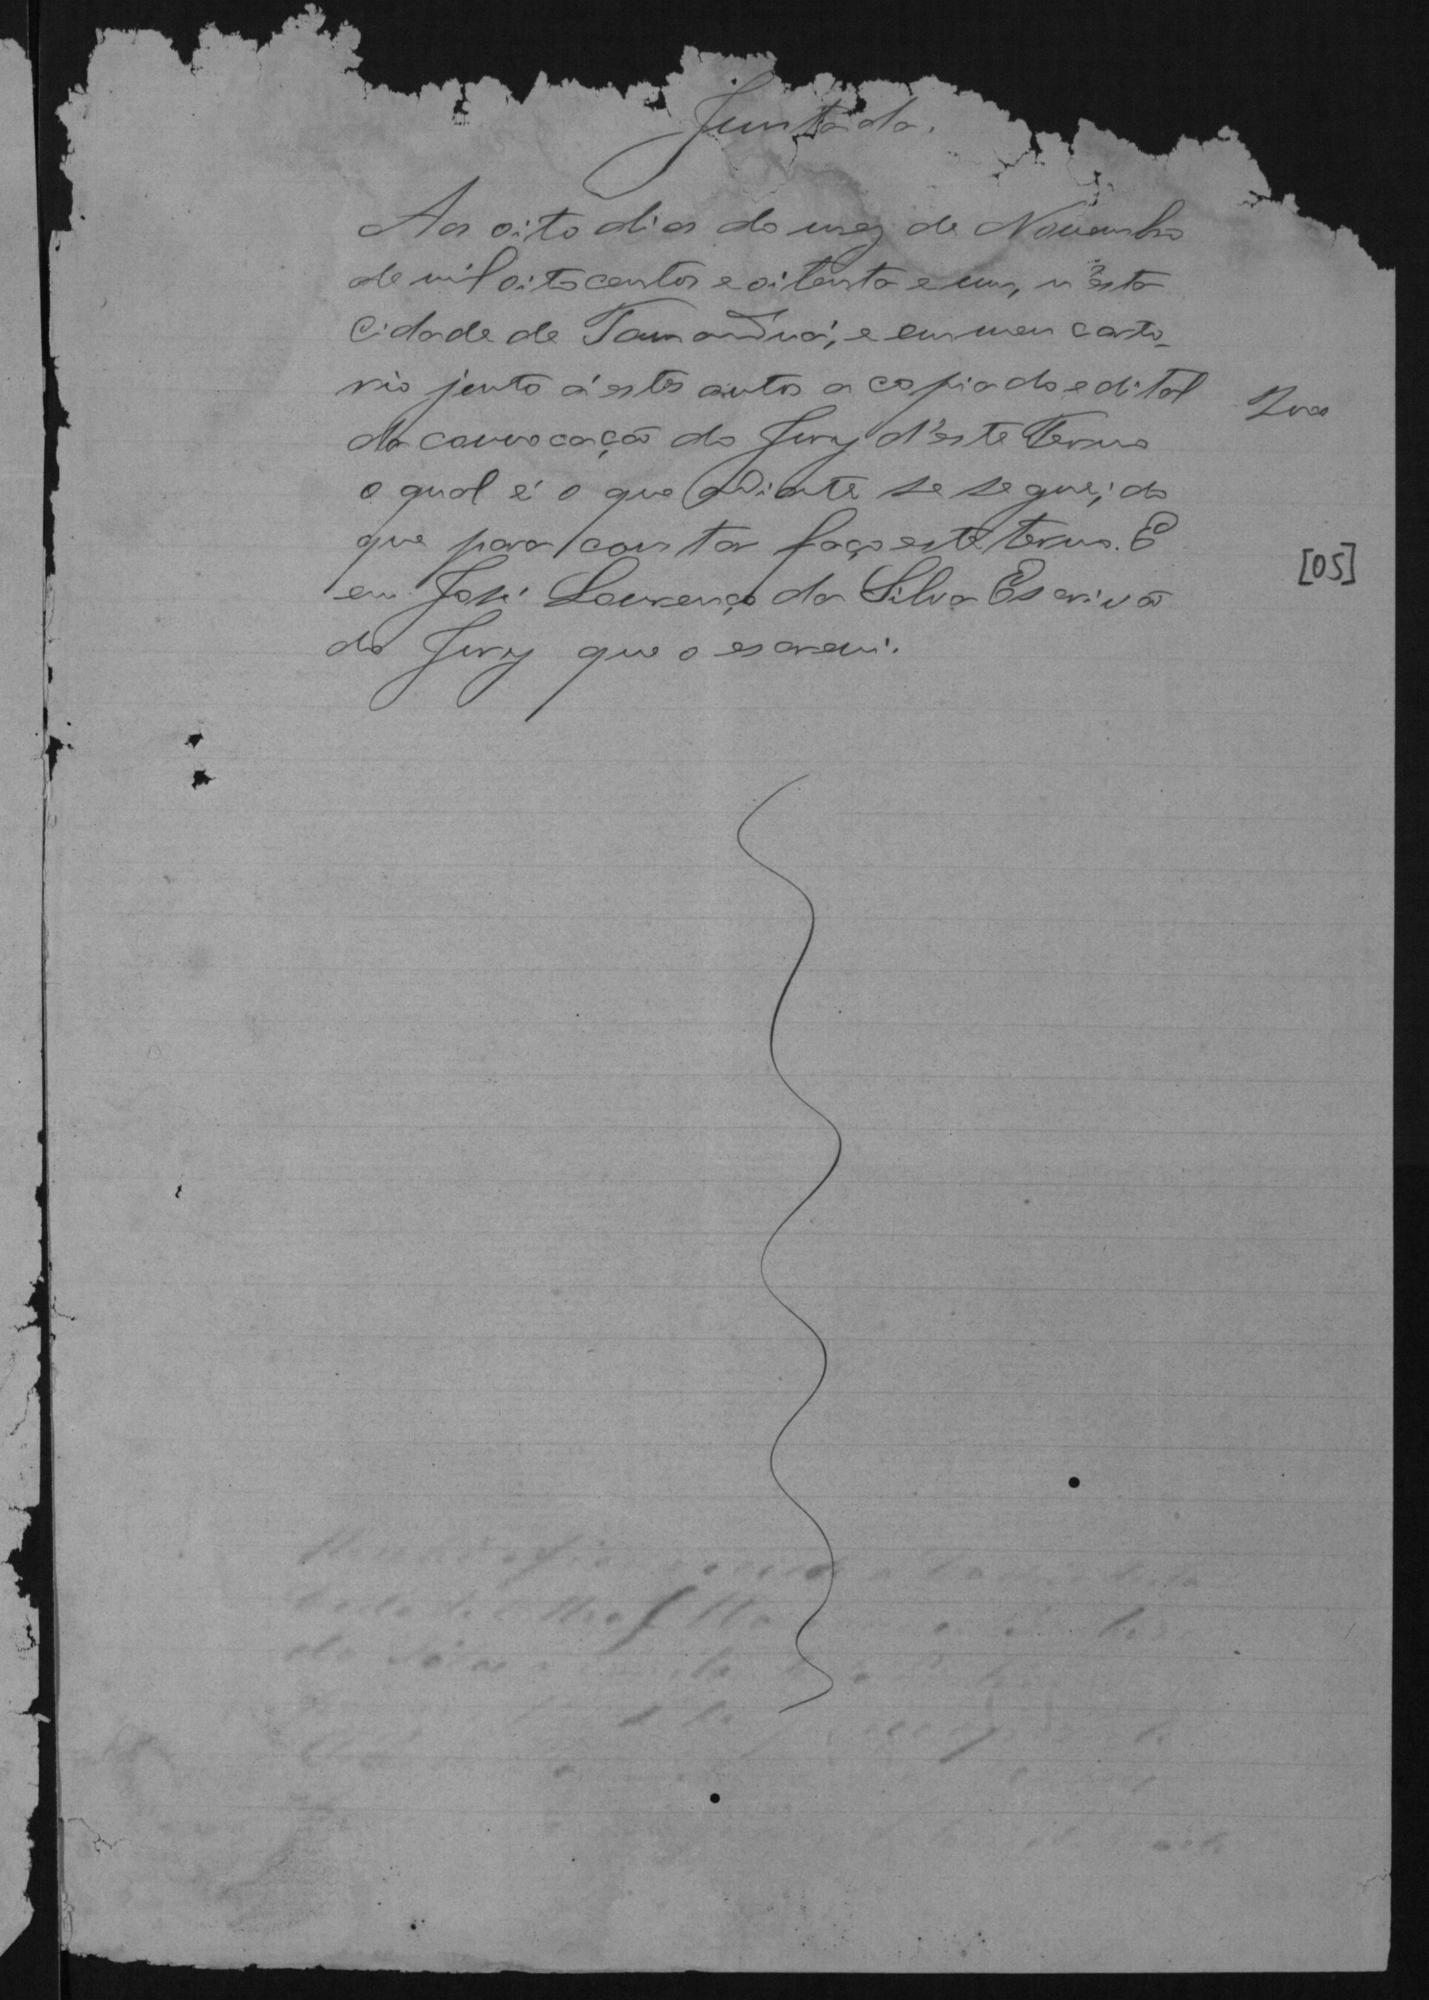 Juntada.
Aos oito dias do mez de Novembro
de mil oitocentos e oitenta e um, n'esta
Cidade de Tamanduá, e em meu carto-
rio junto á estes autos a copia do edital
da convocação do Jury d'este Termo
o qual é o que adiante se segue; do
que para constar faço este termo. E
eu José Lourenço da Silva Escrivão
do Jury que o escrevi.
[05]